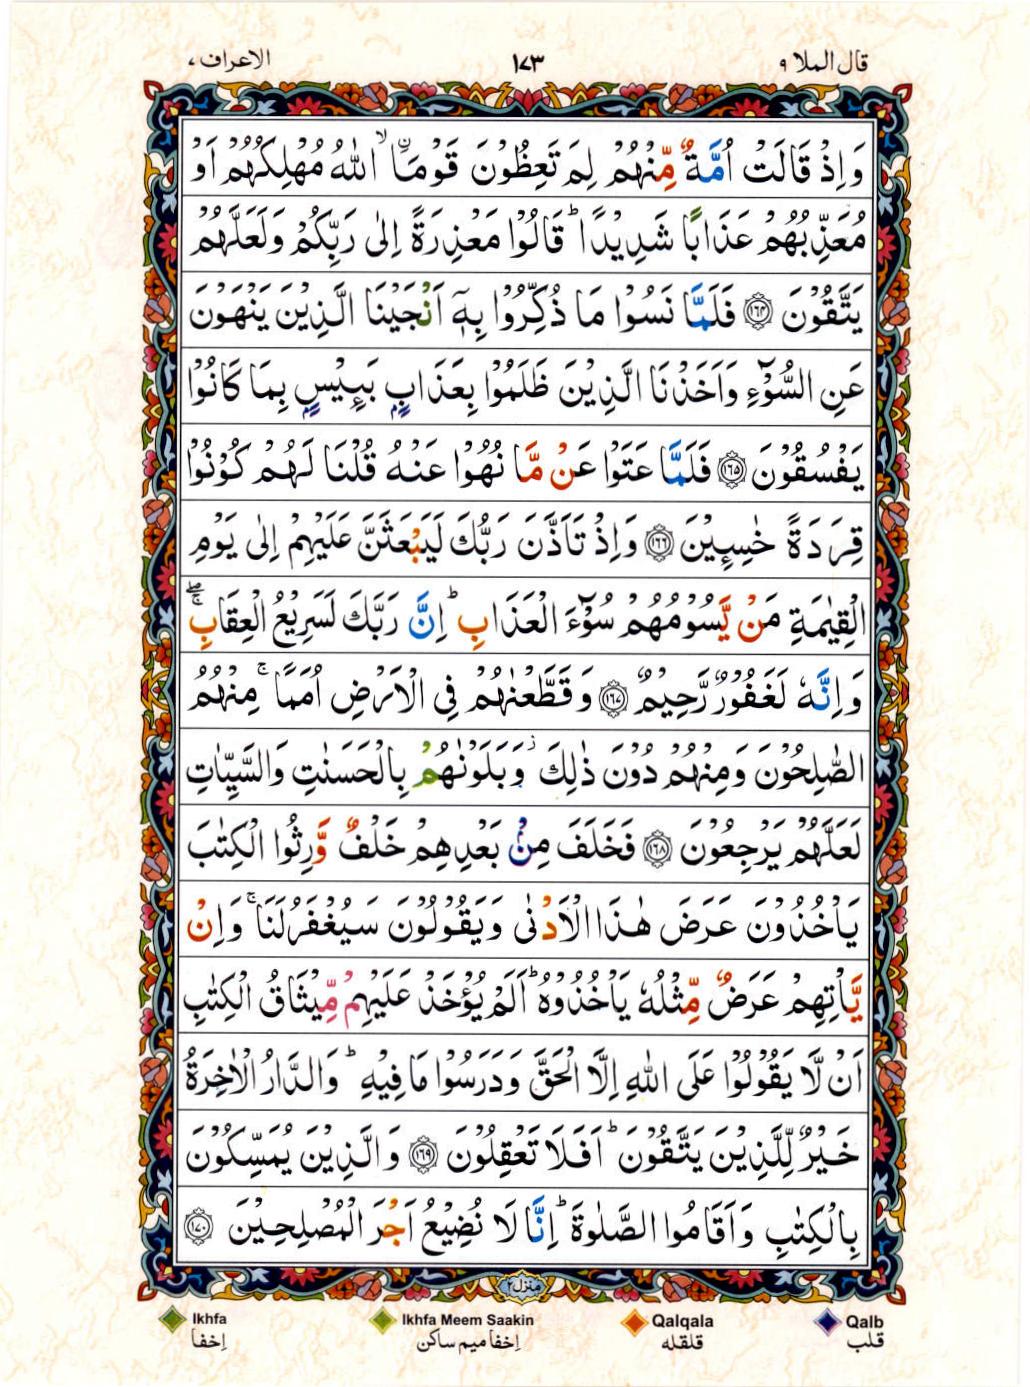 قال الملا ٩
١٧٣
الاعراف ٧
وَاِذْ قَالَتْ اُمَّةٌ مِّنْهُمْ لِمَ تَعِظُوْنَ قَوْمَاۨ ۙ اللّٰهُ مُهْلِكُهُمْ اَوْ
مُعَذِّبُهُمْ عَذَابًا شَدِيْدًا ؕ قَالُوْا مَعْذِرَةً اِلٰى رَبِّكُمْ وَلَعَلَّهُمْ
يَتَّقُوْنَ ۝۱۶۴ فَلَمَّا نَسُوْا مَا ذُكِّرُوْا بِهٖۤ اَنْجَيْنَا الَّذِيْنَ يَنْهَوْنَ
عَنِ السُّوْٓءِ وَاَخَذْنَا الَّذِيْنَ ظَلَمُوْا بِعَذَابٍۭ بَـِٕيْسٍۭ بِمَا كَانُوْا
يَفْسُقُوْنَ ۝۱۶۵ فَلَمَّا عَتَوْا عَنْ مَّا نُهُوْا عَنْهُ قُلْنَا لَهُمْ كُوْنُوْا
قِرَدَةً خٰسِـِٕيْنَ ۝۱۶۶ وَاِذْ تَاَذَّنَ رَبُّكَ لَيَبْعَثَنَّ عَلَيْهِمْ اِلٰى يَوْمِ
الْقِيٰمَةِ مَنْ يَّسُوْمُهُمْ سُوْٓءَ الْعَذَابِ ؕ اِنَّ رَبَّكَ لَسَرِيْعُ الْعِقَابِ ۖۚ
وَاِنَّهٗ لَغَفُوْرٌ رَّحِيْمٌ ۝۱۶۷ وَقَطَّعْنٰهُمْ فِى الْاَرْضِ اُمَمًا ۚ مِنْهُمُ
الصّٰلِحُوْنَ وَمِنْهُمْ دُوْنَ ذٰلِكَ ؗ وَبَلَوْنٰهُمْ بِالْحَسَنٰتِ وَالسَّيِّاٰتِ
لَعَلَّهُمْ يَرْجِعُوْنَ ۝۱۶۸ فَخَلَفَ مِنْۢ بَعْدِهِمْ خَلْفٌ وَّرِثُوا الْكِتٰبَ
يَاْخُذُوْنَ عَرَضَ هٰذَا الْاَدْنٰى وَيَقُوْلُوْنَ سَيُغْفَرُ لَنَا ۚ وَاِنْ
يَّاْتِهِمْ عَرَضٌ مِّثْلُهٗ يَاْخُذُوْهُ ؕ اَلَمْ يُؤْخَذْ عَلَيْهِمْ مِّيْثَاقُ الْكِتٰبِ
اَنْ لَّا يَقُوْلُوْا عَلَى اللّٰهِ اِلَّا الْحَقَّ وَدَرَسُوْا مَا فِيْهِ ؕ وَالدَّارُ الْاٰخِرَةُ
خَيْرٌ لِّلَّذِيْنَ يَتَّقُوْنَ ؕ اَفَلَا تَعْقِلُوْنَ ۝۱۶۹ وَالَّذِيْنَ يُمَسِّكُوْنَ
بِالْكِتٰبِ وَاَقَامُوا الصَّلٰوةَ ؕ اِنَّا لَا نُضِيْعُ اَجْرَ الْمُصْلِحِيْنَ ۝۱۷۰
منزل ٢
Ikhfa
Ikhfa Meem Saakin
Qalqala
Qalb
إخفا
إخفا ميم ساكن
قلقله
قلب